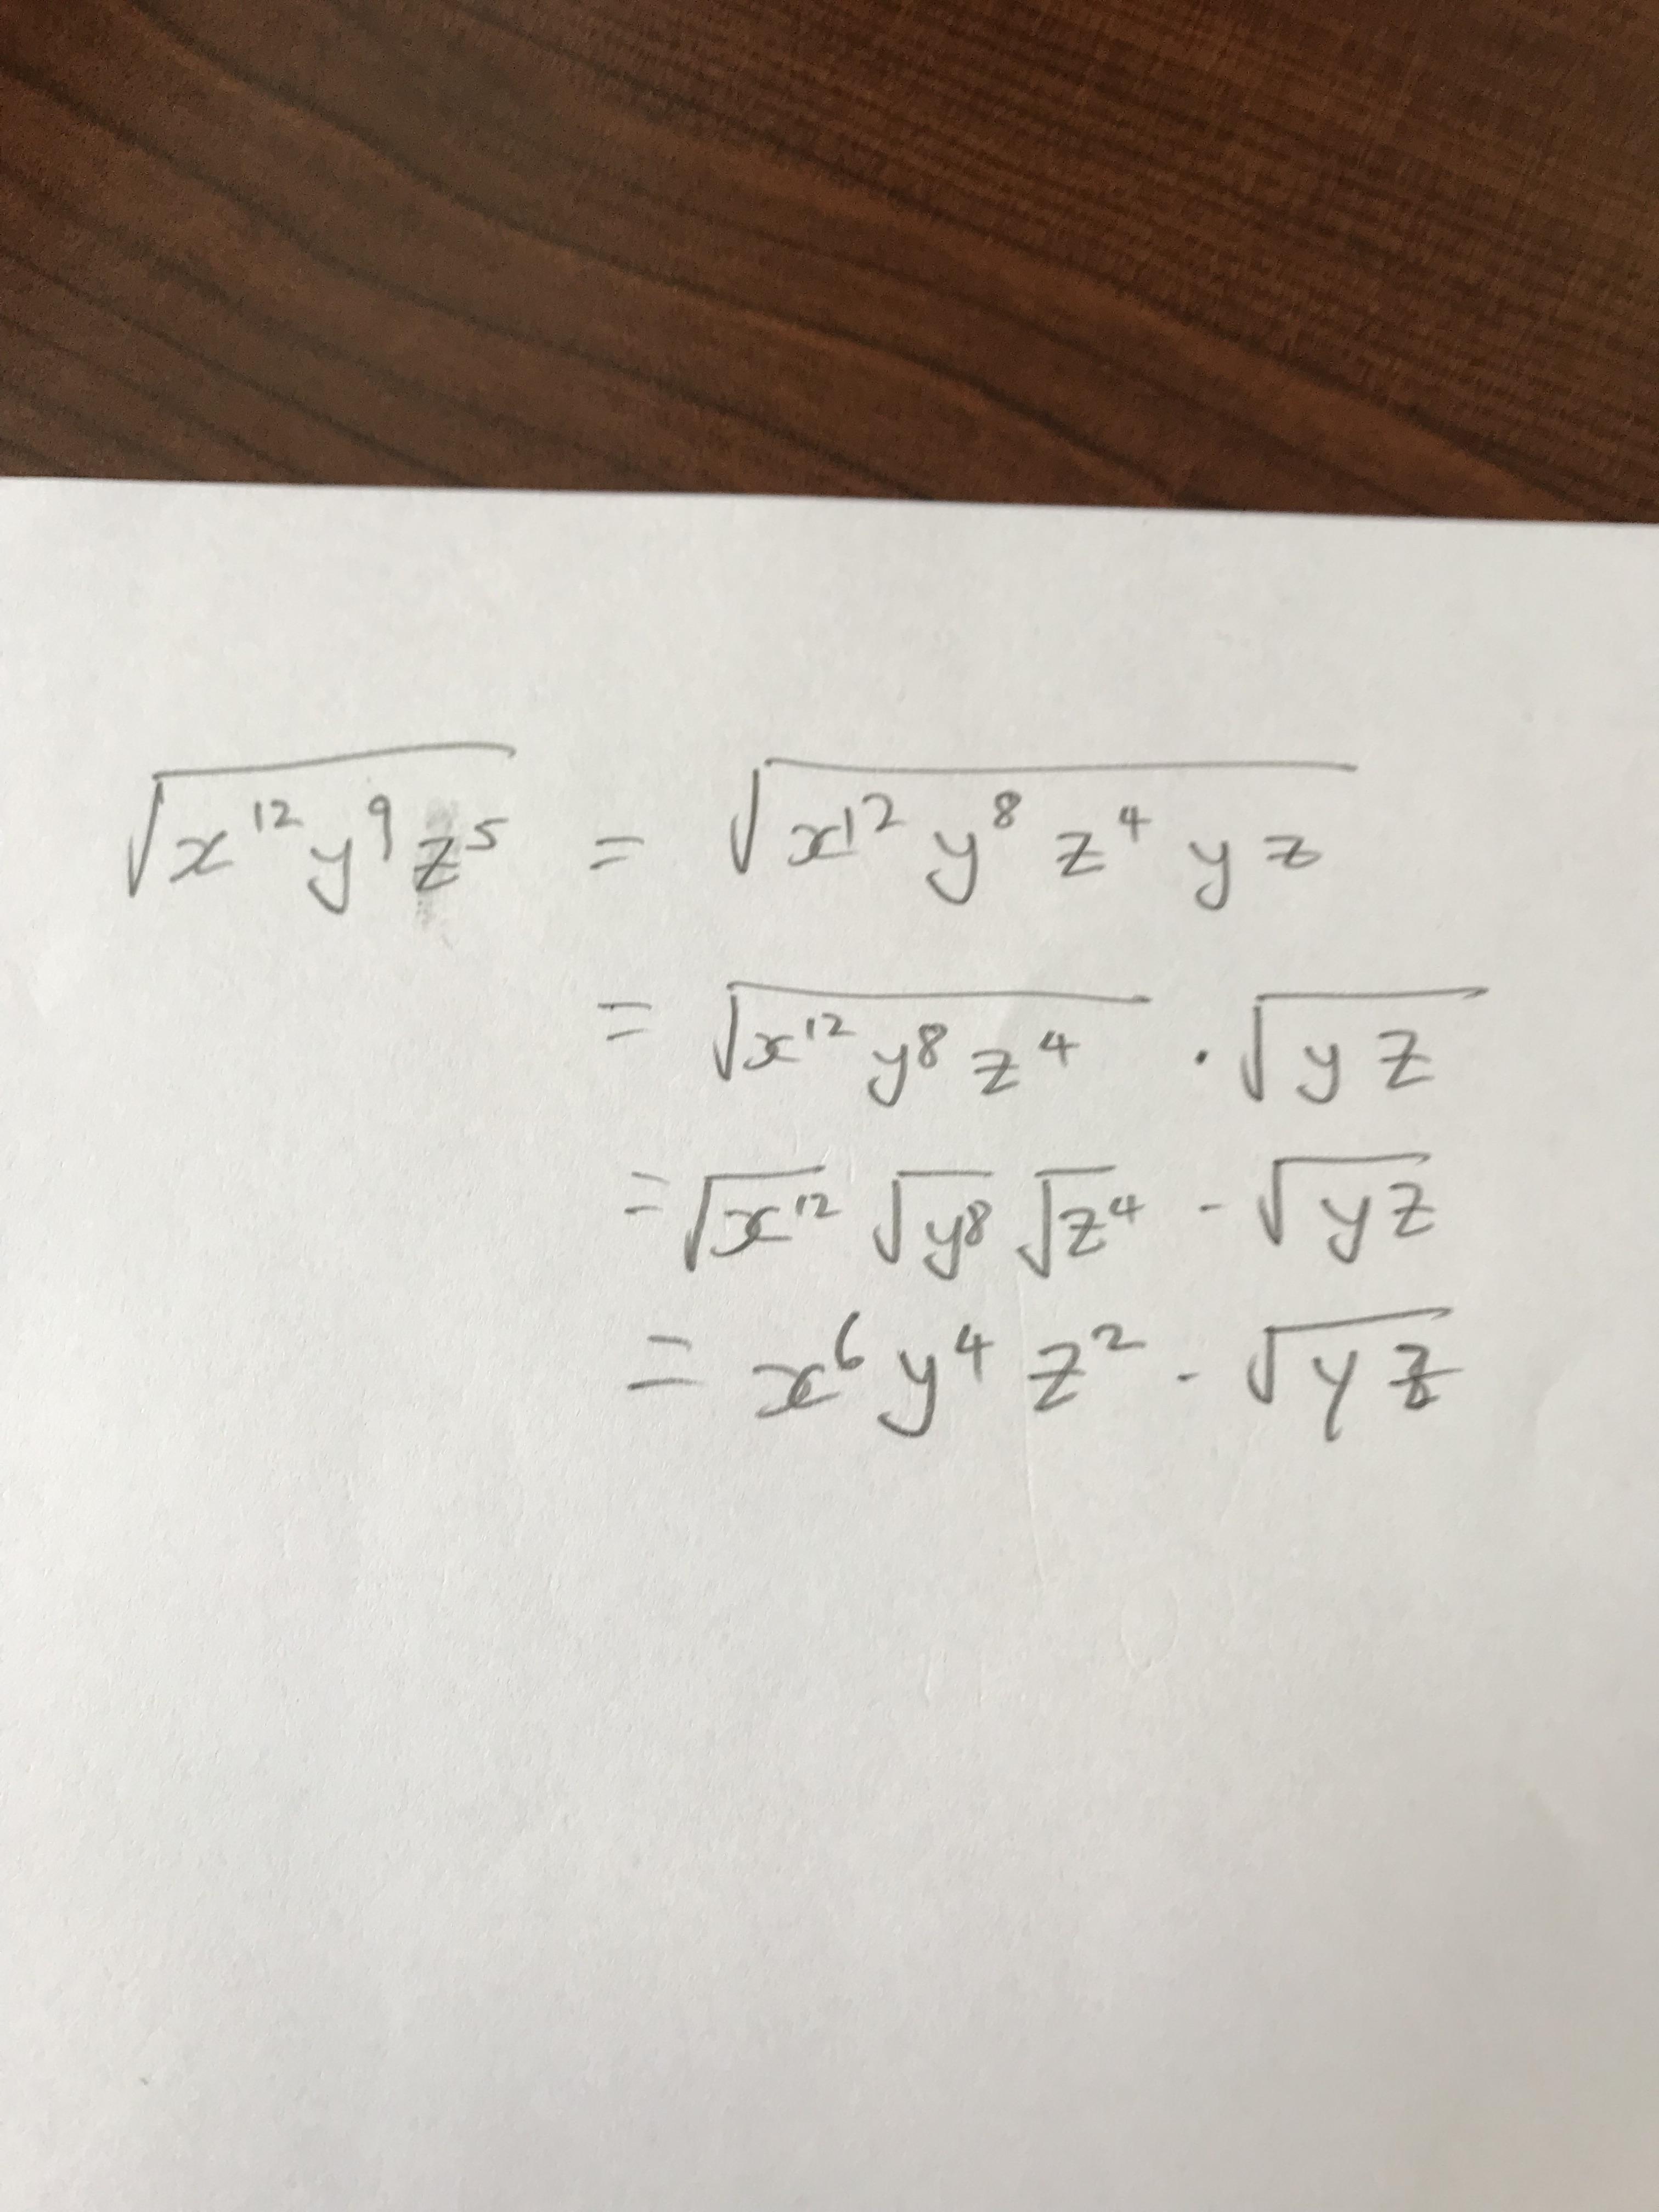 √(x¹²y⁹z⁵) = √(x¹²y⁸z⁴yz)
= √(x¹²y⁸z⁴) · √(yz)
= √(x¹²) √(y⁸) √(z⁴) · √(yz)
= x⁶y⁴z² · √(yz)